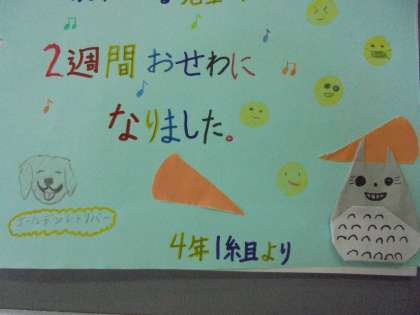 2週間おせわに
なりました。
ゴールデンレトリバー
4年1組より